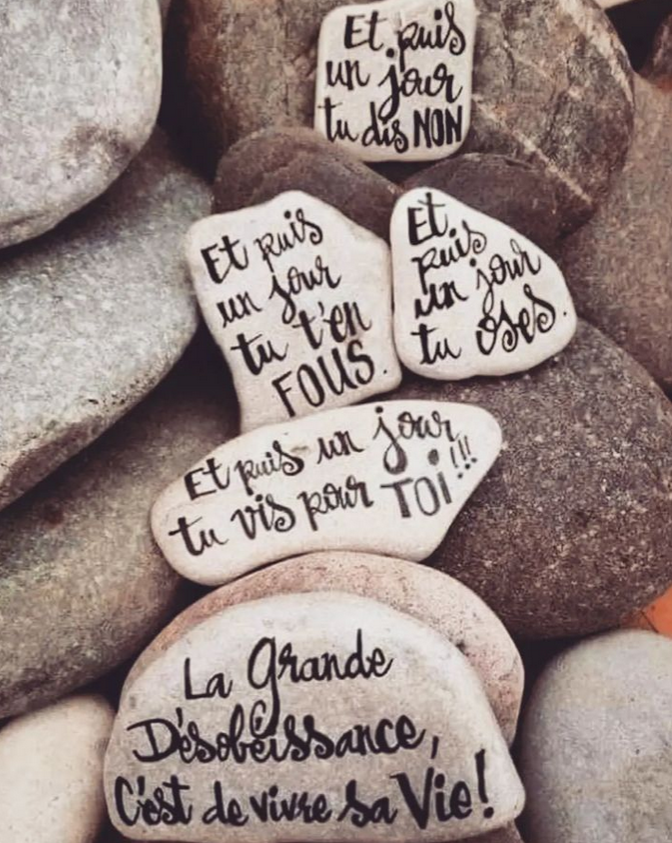 Et puis
un jour
tu dis NON
Et puis
un jour
tu t'en
FOUS.
Et
puis
un jour
tu oses.
Et puis un jour
tu vis pour TOi!!!
La Grande
Désobéissance,
C'est de vivre sa Vie!